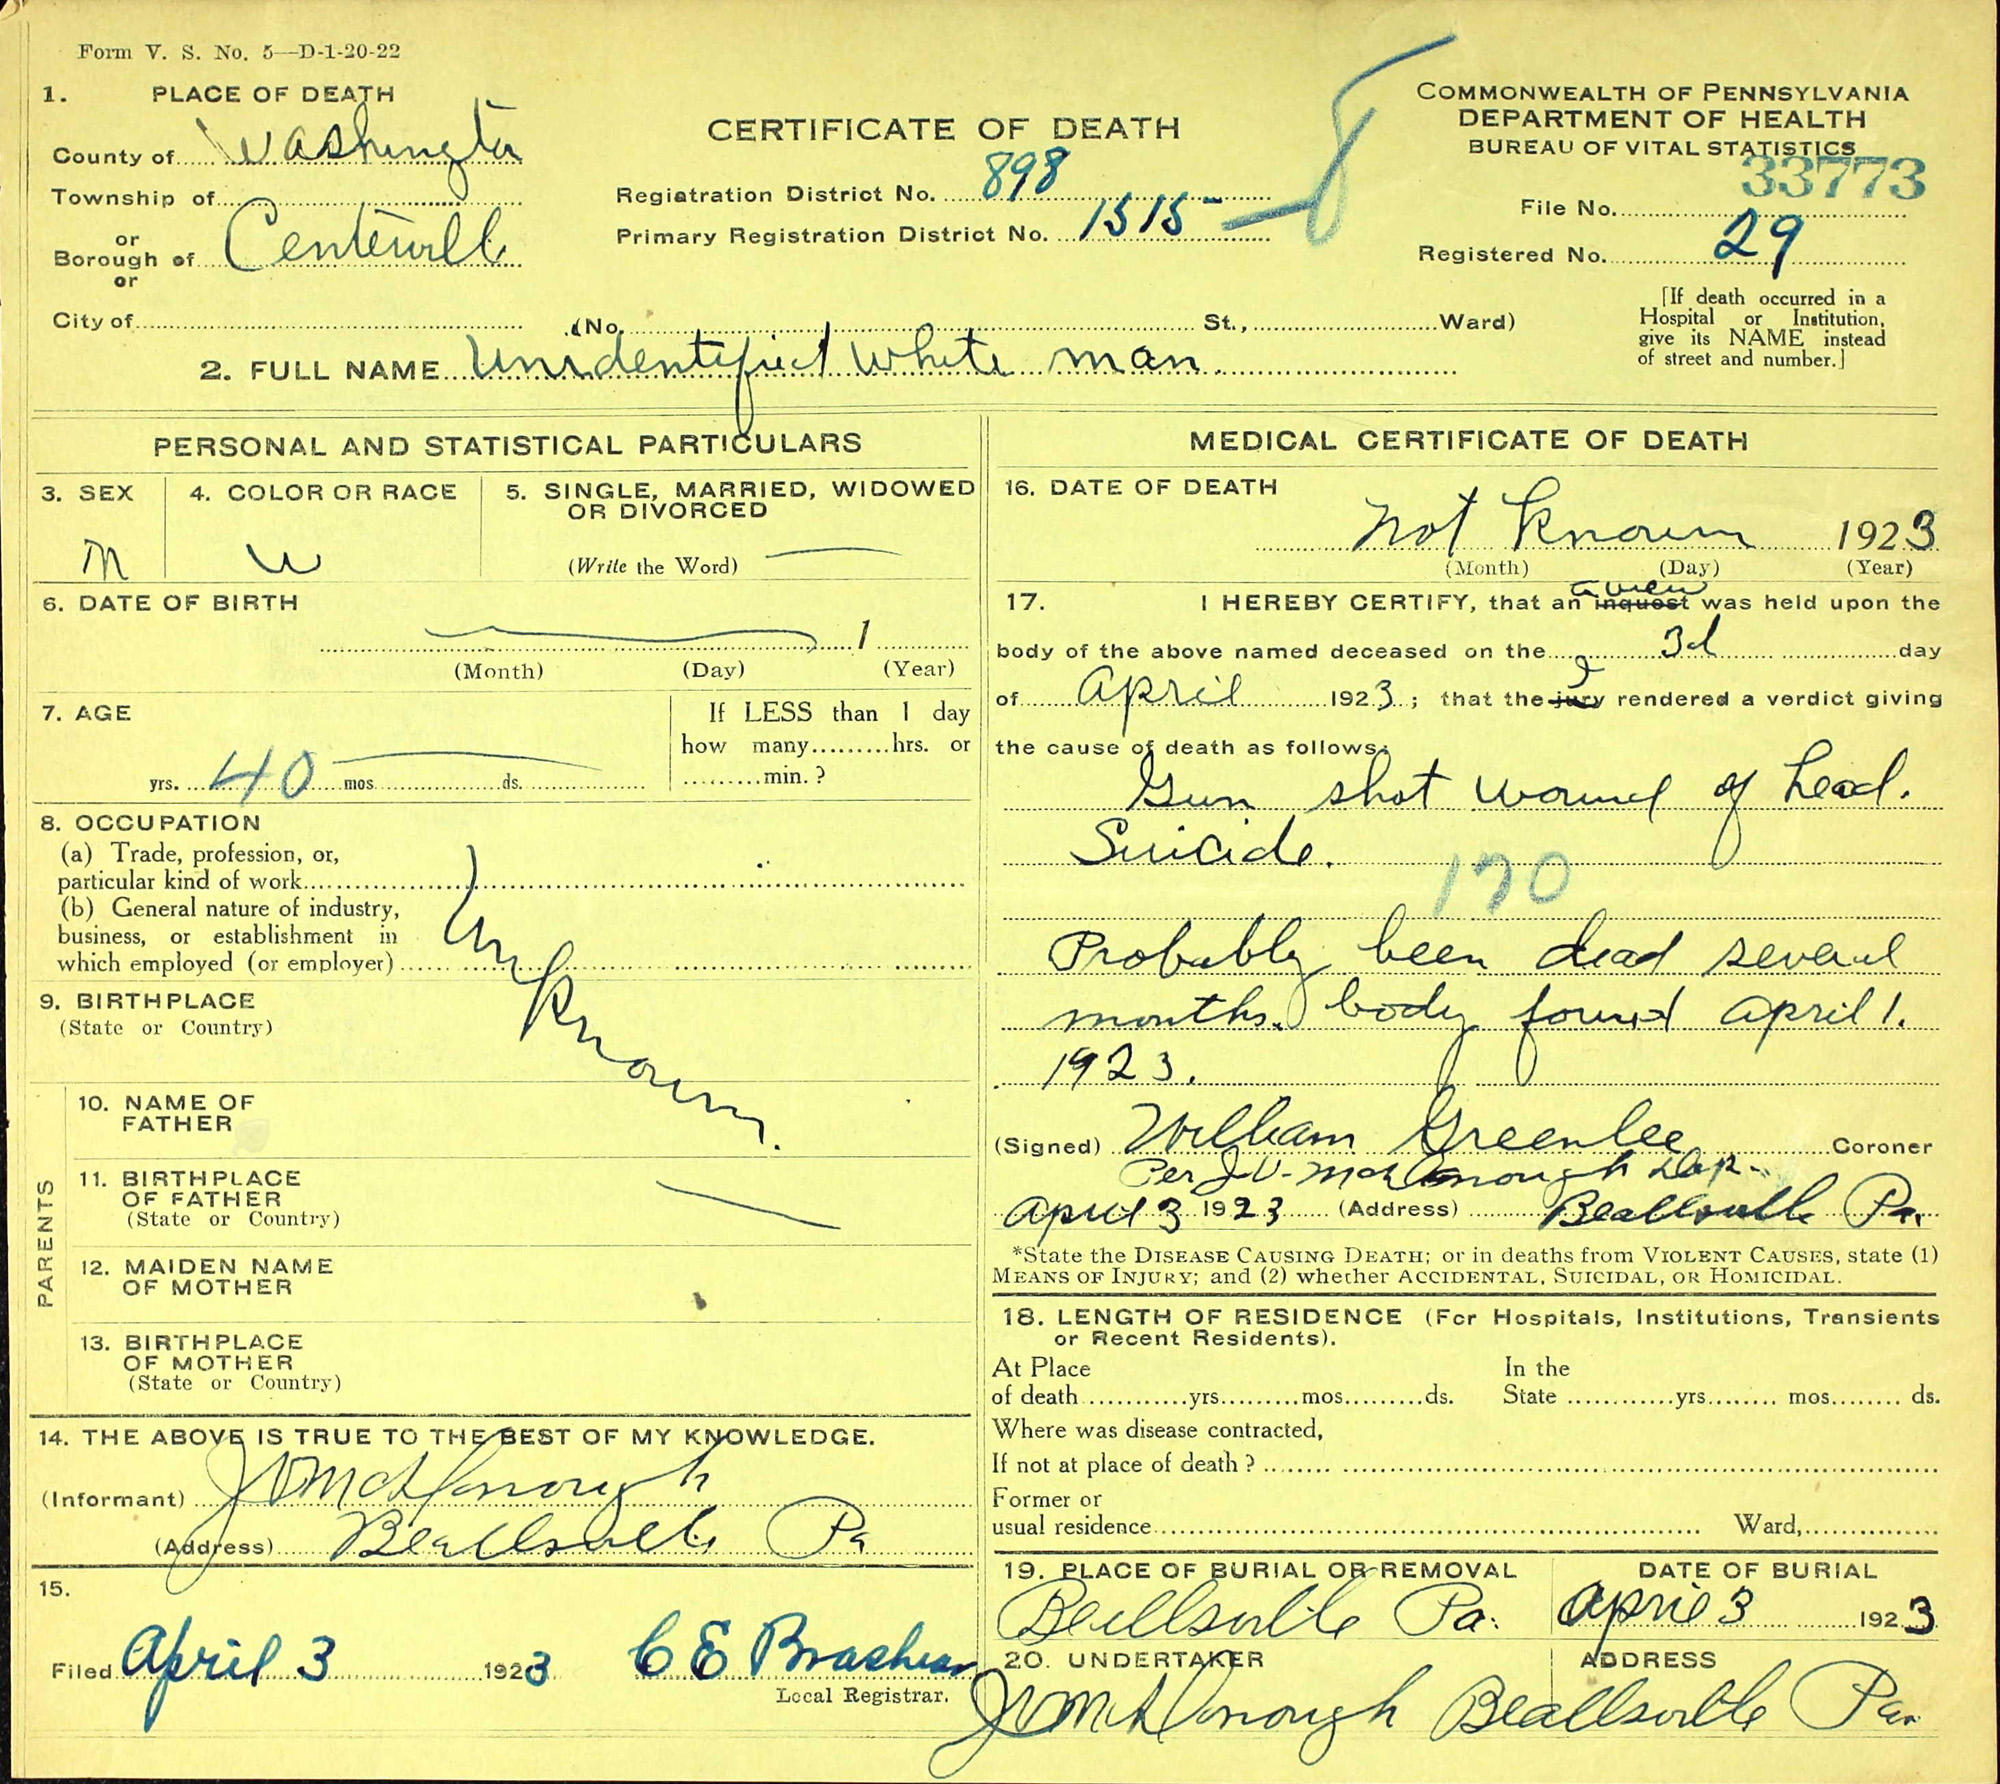 Form V. S. No. 5—D-1-20-22
1. PLACE OF DEATH
County of Washington
Township of
or
Borough of Centerville
or
City of
CERTIFICATE OF DEATH
Registration District No. 898
Primary Registration District No. 1515
(No. St., Ward)
COMMONWEALTH OF PENNSYLVANIA
DEPARTMENT OF HEALTH
BUREAU OF VITAL STATISTICS
33773
File No.
Registered No. 29
[If death occurred in a
Hospital or Institution,
give its NAME instead
of street and number.]
2. FULL NAME Unidentified White man.
PERSONAL AND STATISTICAL PARTICULARS
3. SEX
M
4. COLOR OR RACE
W
5. SINGLE, MARRIED, WIDOWED
OR DIVORCED
(Write the Word)
6. DATE OF BIRTH
1
(Month) (Day) (Year)
7. AGE
yrs. 40 mos ds.
If LESS than 1 day
how many.........hrs. or
.........min. ?
8. OCCUPATION
(a) Trade, profession, or,
particular kind of work
(b) General nature of industry,
business, or establishment in
which employed (or employer)
Unknown.
9. BIRTHPLACE
(State or Country)
PARENTS
10. NAME OF
FATHER
11. BIRTHPLACE
OF FATHER
(State or Country)
12. MAIDEN NAME
OF MOTHER
13. BIRTHPLACE
OF MOTHER
(State or Country)
14. THE ABOVE IS TRUE TO THE BEST OF MY KNOWLEDGE.
(Informant) J V McDonough
(Address) Beallsville Pa
15.
Filed April 3 1923 C E Brashear
Local Registrar.
MEDICAL CERTIFICATE OF DEATH
16. DATE OF DEATH
Not Known 1923
(Month) (Day) (Year)
a view
17. I HEREBY CERTIFY, that an inquest was held upon the
body of the above named deceased on the 3d day
I
of April 1923; that the jury rendered a verdict giving
the cause of death as follows:
Gun shot wound of head.
Suicide.
170
Probably been dead several
months. body found April 1.
1923.
(Signed) William Greenlee Coroner
Per J.V. McDonough Dep.
April 3 1923 (Address) Beallsville Pa.
*State the DISEASE CAUSING DEATH; or in deaths from VIOLENT CAUSES, state (1)
MEANS OF INJURY; and (2) whether ACCIDENTAL, SUICIDAL, OR HOMICIDAL.
18. LENGTH OF RESIDENCE (For Hospitals, Institutions, Transients
or Recent Residents).
At Place In the
of death yrs. mos. ds. State yrs. mos. ds.
Where was disease contracted,
If not at place of death ?
Former or
usual residence Ward,
19. PLACE OF BURIAL OR REMOVAL
Beallsville Pa.
DATE OF BURIAL
April 3 1923
20. UNDERTAKER
J V McDonough
ADDRESS
Beallsville Pa.